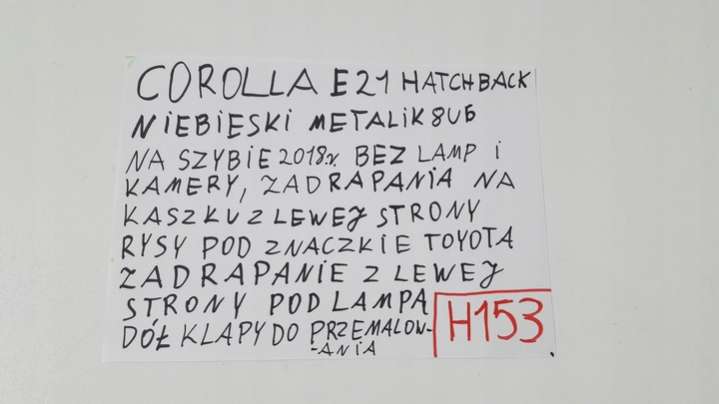 COROLLA E21 HATCHBACK
NIEBIESKI METALIK 8U6
NA SZYBIE 2018.r. BEZ LAMP i
KAMERY, ZADRAPANIA NA
KASZKU Z LEWEJ STRONY
RYSY POD ZNACZKIE TOYOTA
ZADRAPANIE Z LEWEJ
STRONY POD LAMPĄ
DÓŁ KLAPY DO PRZEMALOW-
-ANIA
H153